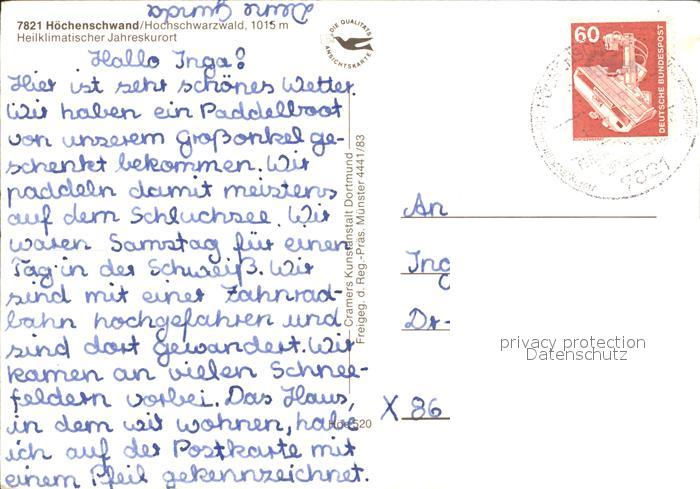 7821 Höchenschwand/Hochschwarzwald, 1015 m
Heilklimatischer Jahreskurort
DIE QUALITÄTS
ANSICHTSKARTE
60
DEUTSCHE BUNDESPOST
7821
Hallo Inga!
Hier ist sehr schönes Wetter.
Wir haben ein Paddelboot
von unserem Großonkel ge-
schenkt bekommen. Wir
paddeln damit meistens
auf dem Schluchsee. Wir
waren Samstag für einen
Tag in der Schweiß. Wir
sind mit einer Zahnrad-
bahn hochgefahren und
sind dort gewandert. Wir
kamen an vielen Schnee-
feldern vorbei. Das Haus,
in dem wir wohnen, habe
ich auf der Postkarte mit
einem Pfeil gekennzeichnet.
Deine Gunda
Cramers Kunstanstalt Dortmund
Freigeg. d. Reg.-Präs. Münster 4441/83
520
An
Ing
Dr-
X 86
privacy protection
Datenschutz